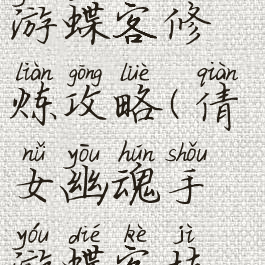 游蝶客修
liàn gōng lüè qiàn
炼攻略(倩
nǚ yōu hún shǒu
女幽魂手
yóu dié kè jì
游蝶客技